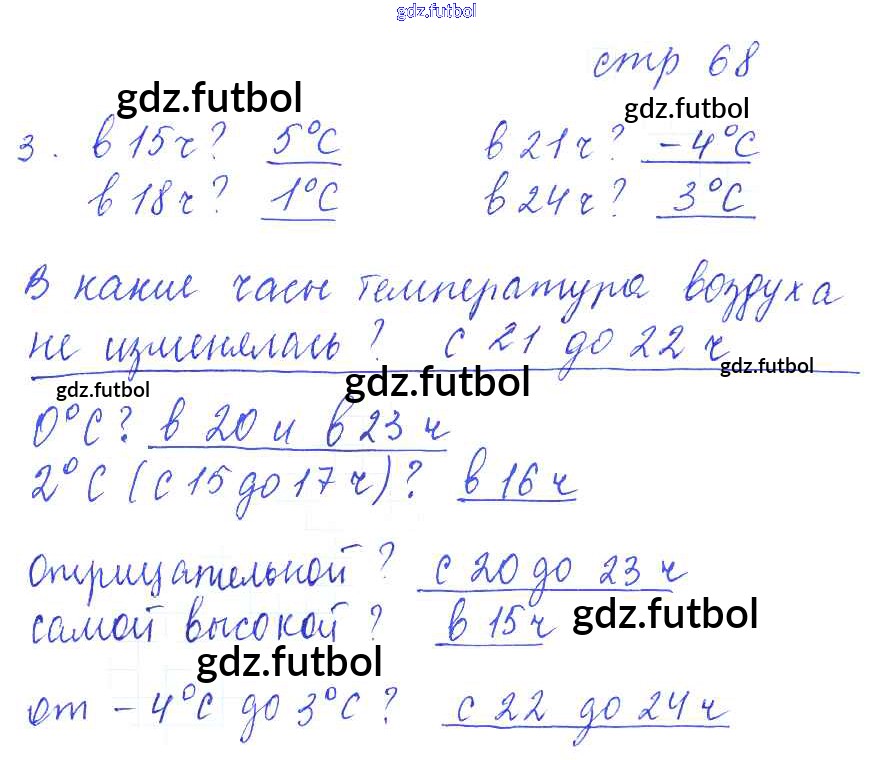 gdz.futbol
стр 68
gdz.futbol
gdz.futbol
3. в 15 ч? 5°С в 21 ч? -4°С
в 18 ч? 1°С в 24 ч? 3°С
В какие часы температура воздуха
не изменялась? с 21 до 22 ч
gdz.futbol
gdz.futbol
gdz.futbol
0°С? в 20 и в 23 ч
2°С (с 15 до 17 ч)? в 16 ч
отрицательной? с 20 до 23 ч
самой высокой? в 15 ч
gdz.futbol
gdz.futbol
от -4°С до 3°С? с 22 до 24 ч